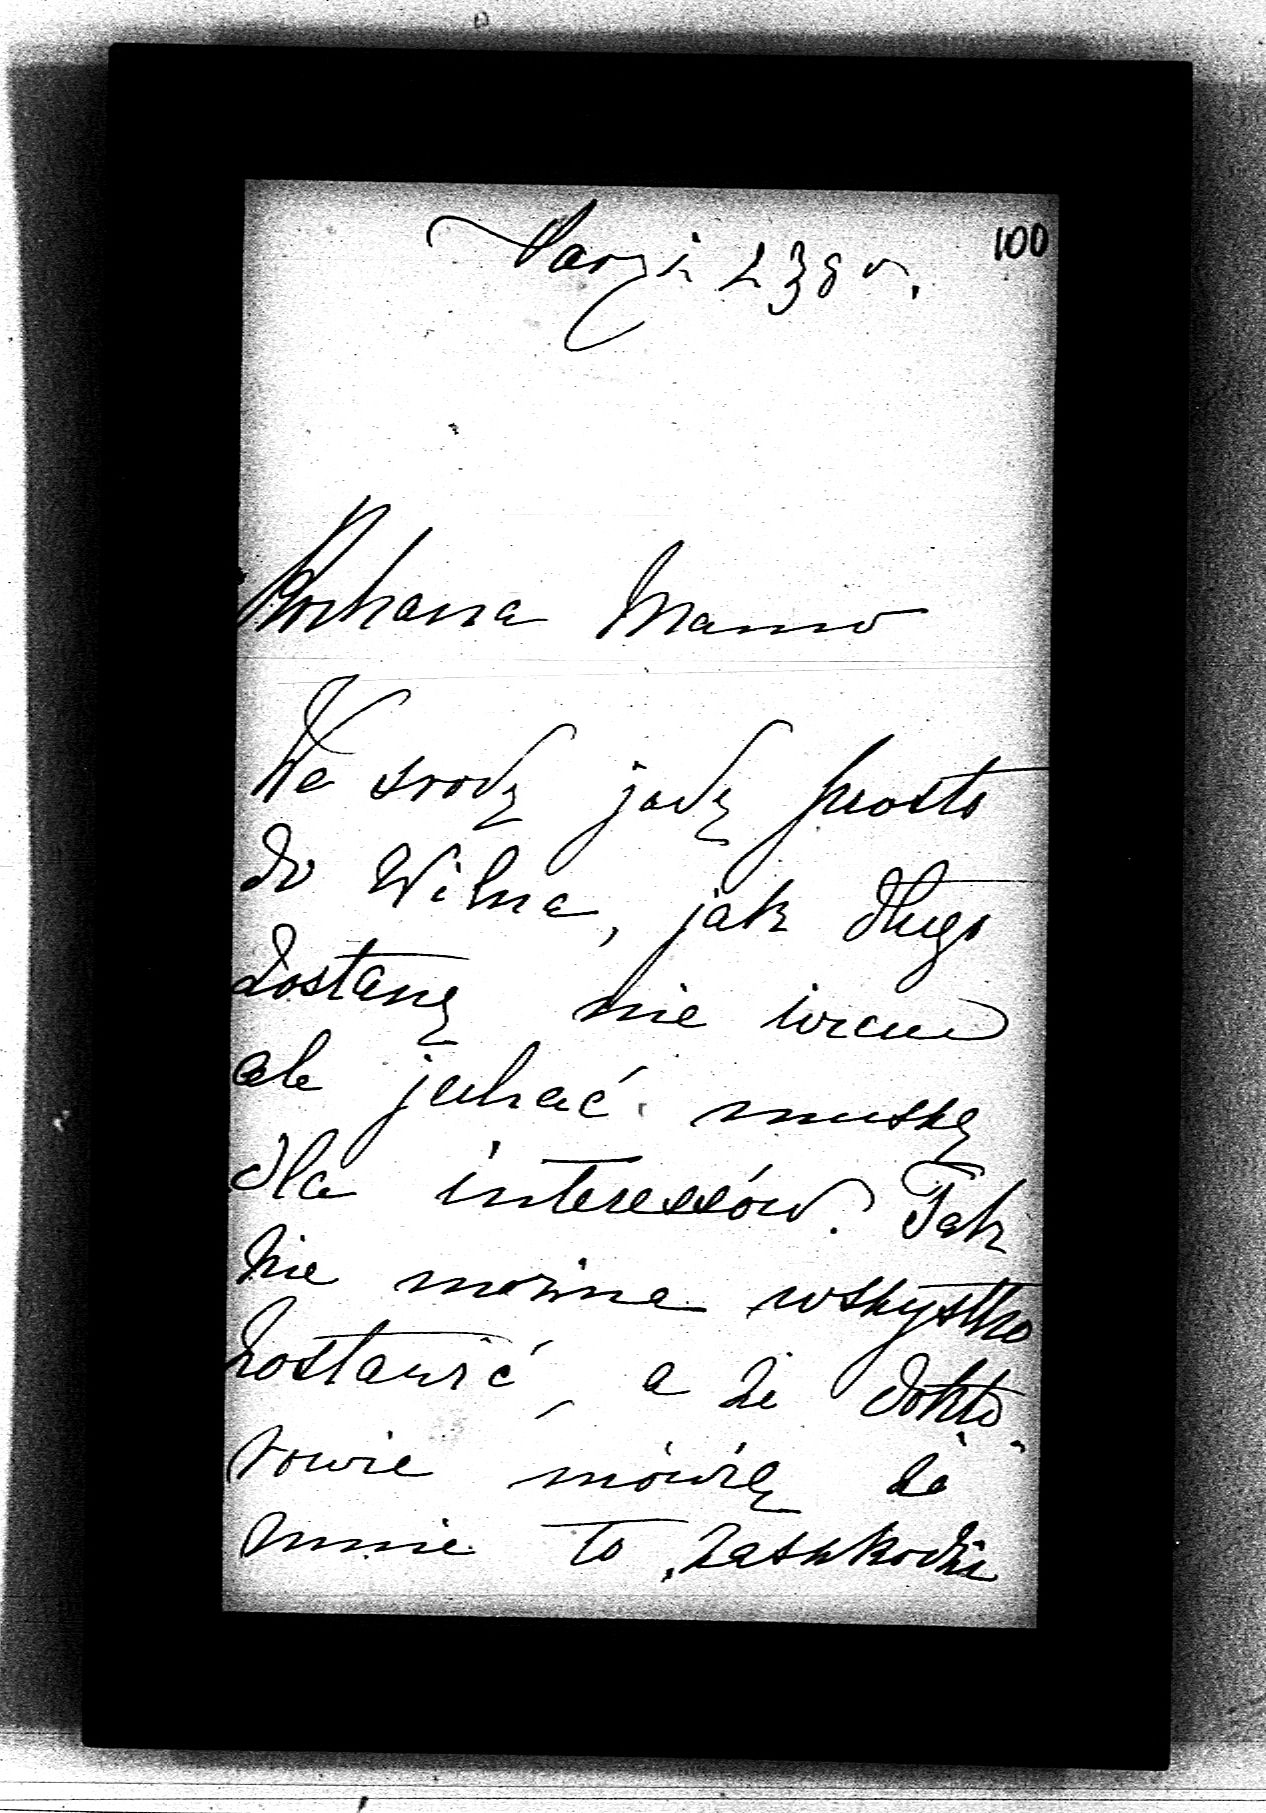 100
Kochana Mamo
We srodę jadę prosto
do Wilna, jak długo
zostanę nie wiem
ale jechać muszę
dla interessów. Tak
nie można wszystko
zostawić, a że dokto-
rowie mówię że
mnie to zaszkodzi